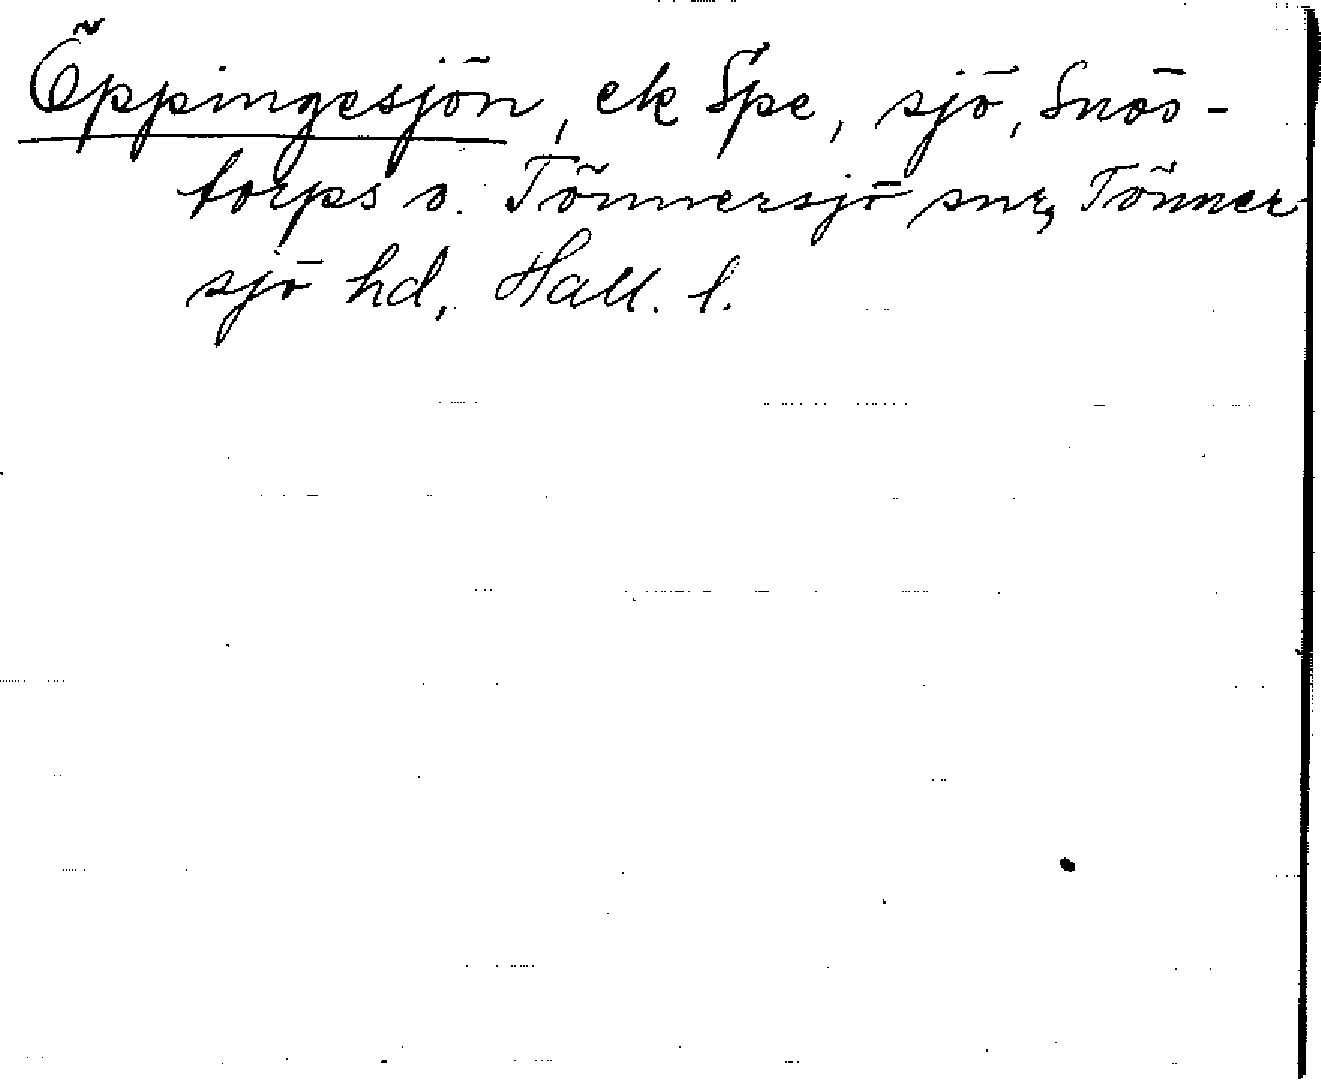 Öppingesjön, ek Spe, sjö, Snös-
torps o. Tönnersjö snr, Tönner-
sjö hd, Hall. l.